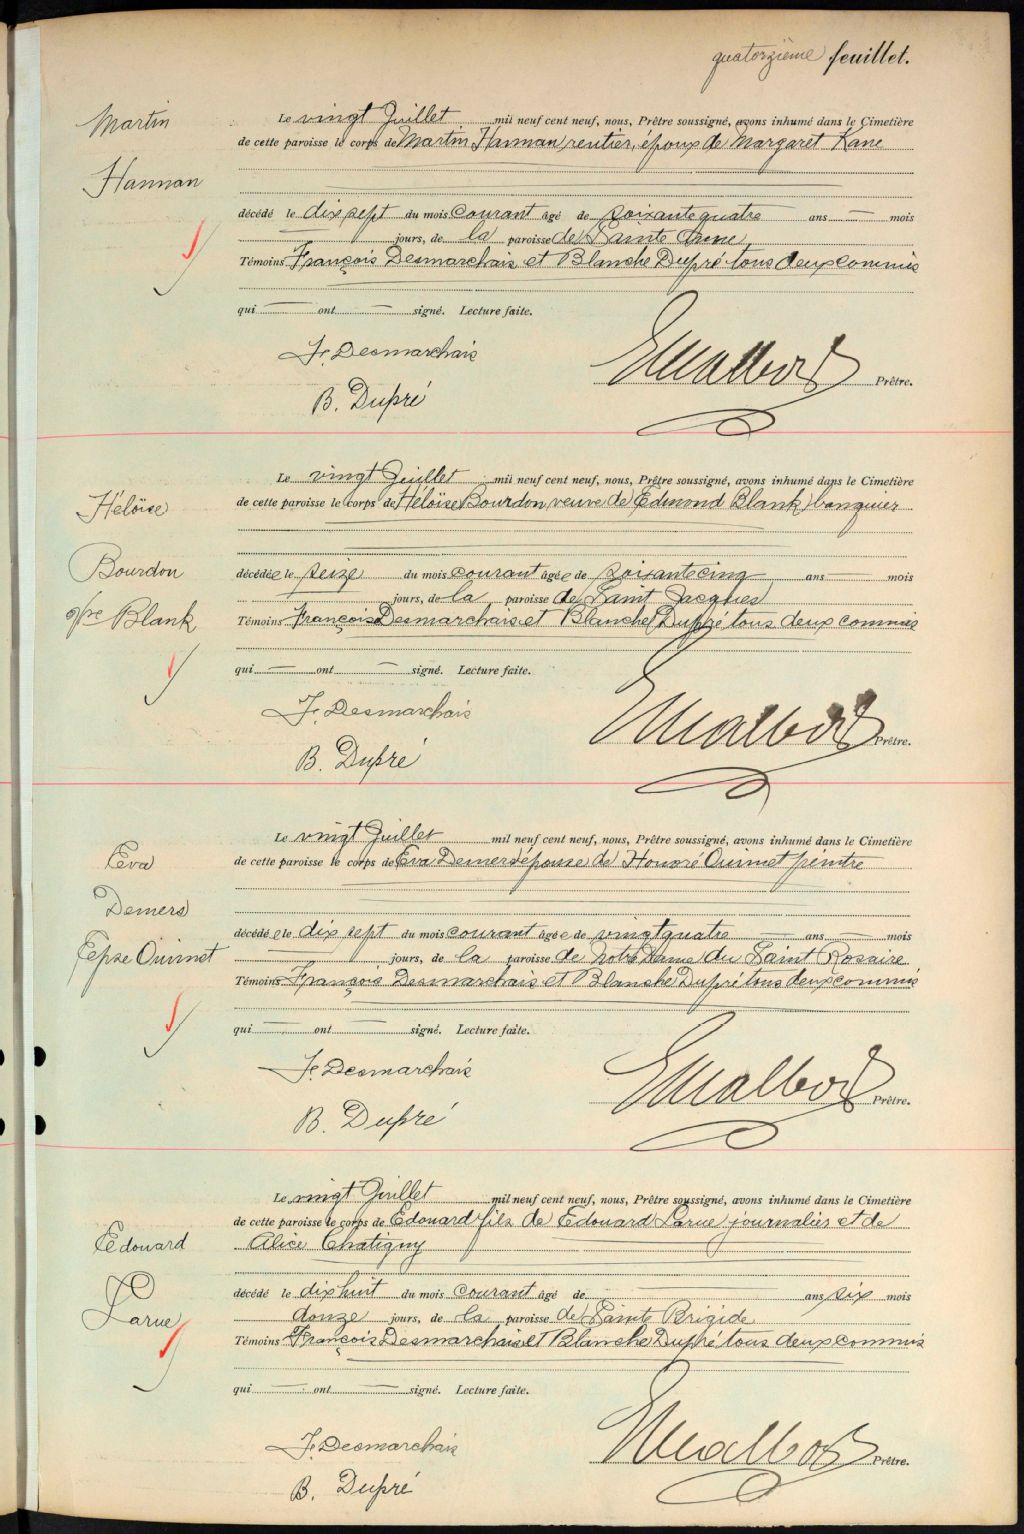 quatorzième feuillet.
Martin
Hannan
Le vingt Juillet mil neuf cent neuf, nous, Prêtre soussigné, avons inhumé dans le Cimetière
de cette paroisse le corps de Martin Hannan, rentier, époux de Margaret Kane
décédé le dix sept du mois courant âgé de soixante quatre ans — mois
jours, de la paroisse de Sainte Anne
Témoins François Desmarchais et Blanche Dupré tous deux commis
qui — ont — signé. Lecture faite.
F. Desmarchais
B. Dupré
Prêtre.
Héloïse
Bourdon
Blank
Le vingt Juillet mil neuf cent neuf, nous, Prêtre soussigné, avons inhumé dans le Cimetière
de cette paroisse le corps de Héloïse Bourdon, veuve de Edmond Blank, banquier
décédée le seize du mois courant âgée de soixante cinq ans — mois
jours, de la paroisse de Saint Jacques
Témoins François Desmarchais et Blanche Dupré tous deux commis
qui — ont — signé. Lecture faite.
F. Desmarchais
B. Dupré
Prêtre.
Eva
Demers
Epse Ouimet
Le vingt Juillet mil neuf cent neuf, nous, Prêtre soussigné, avons inhumé dans le Cimetière
de cette paroisse le corps de Eva Demers épouse de Honoré Ouimet peintre
décédée le dix sept du mois courant âgée de vingt quatre — ans — mois
— jours, de la paroisse de Notre Dame du Saint Rosaire
Témoins François Desmarchais et Blanche Dupré tous deux commis
qui — ont — signé. Lecture faite.
F. Desmarchais
B. Dupré
Prêtre.
Edouard
Larue
Le vingt Juillet mil neuf cent neuf, nous, Prêtre soussigné, avons inhumé dans le Cimetière
de cette paroisse le corps de Edouard fils de Edouard Larue journalier et de
Alice Chatigny
décédé le dix huit du mois courant âgé de — ans six mois
douze jours, de la paroisse de Sainte Brigide
Témoins François Desmarchais et Blanche Dupré tous deux commis
qui — ont — signé. Lecture faite.
F. Desmarchais
B. Dupré
Prêtre.